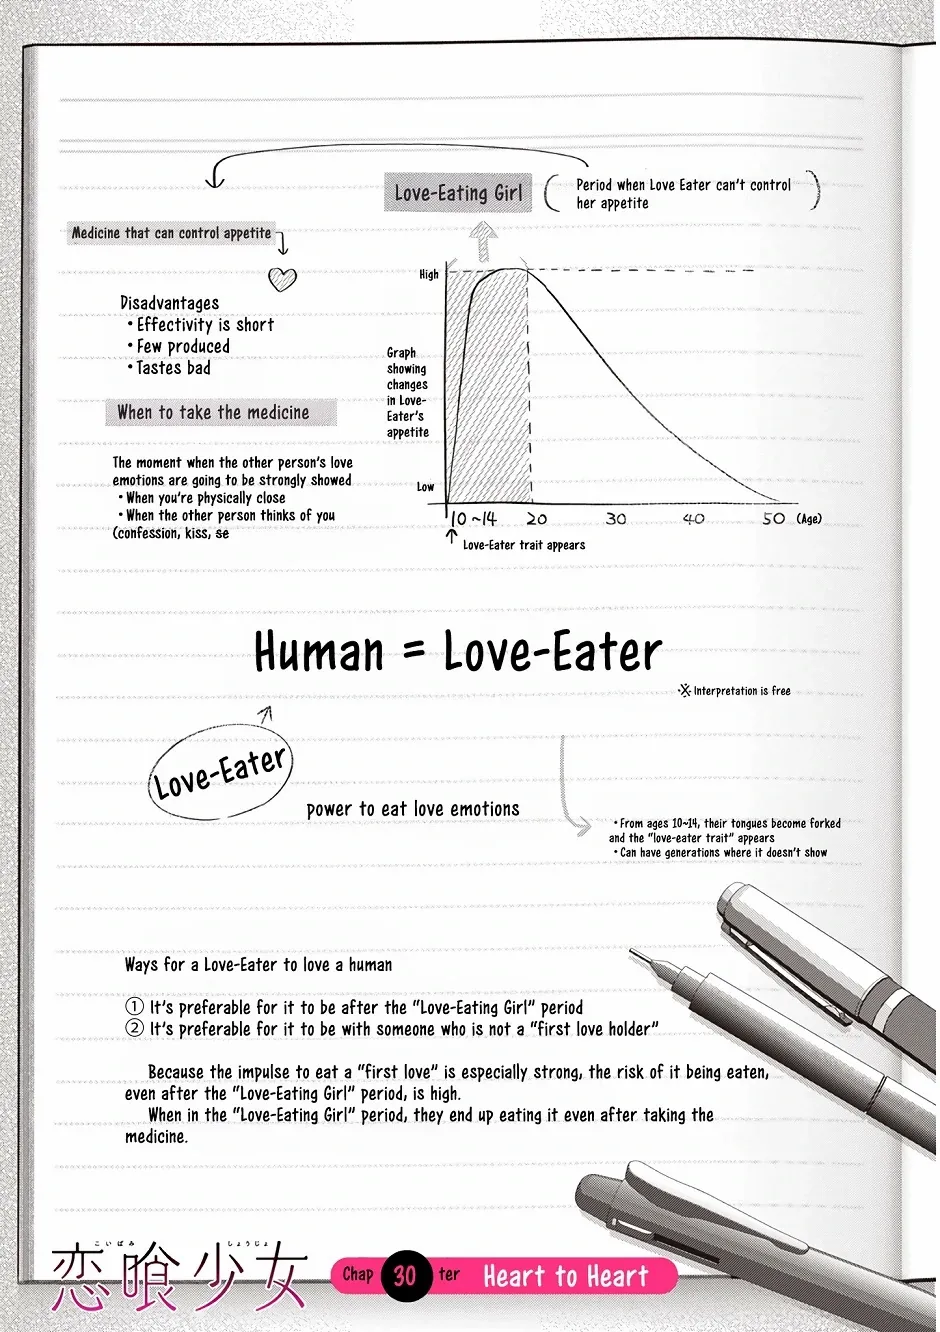 Love-Eating Girl
Period when Love Eater can't control
her appetite
Medicine that can control appetite
Disadvantages
・Effectivity is short
・Few produced
・Tastes bad
When to take the medicine
The moment when the other person's love
emotions are going to be strongly showed
・When you're physically close
・When the other person thinks of you
(confession, kiss, se
High
Graph
showing
changes
in Love-
Eater's
appetite
Low
10~14 20 30 40 50 (Age)
Love-Eater trait appears
Human = Love-Eater
※ Interpretation is free
Love-Eater
power to eat love emotions
・From ages 10~14, their tongues become forked
and the "love-eater trait" appears
・Can have generations where it doesn't show
Ways for a Love-Eater to love a human
① It's preferable for it to be after the "Love-Eating Girl" period
② It's preferable for it to be with someone who is not a "first love holder"
Because the impulse to eat a "first love" is especially strong, the risk of it being eaten,
even after the "Love-Eating Girl" period, is high.
When in the "Love-Eating Girl" period, they end up eating it even after taking the
medicine.
こいばみ しょうじょ
恋喰少女
Chap 30 ter Heart to Heart